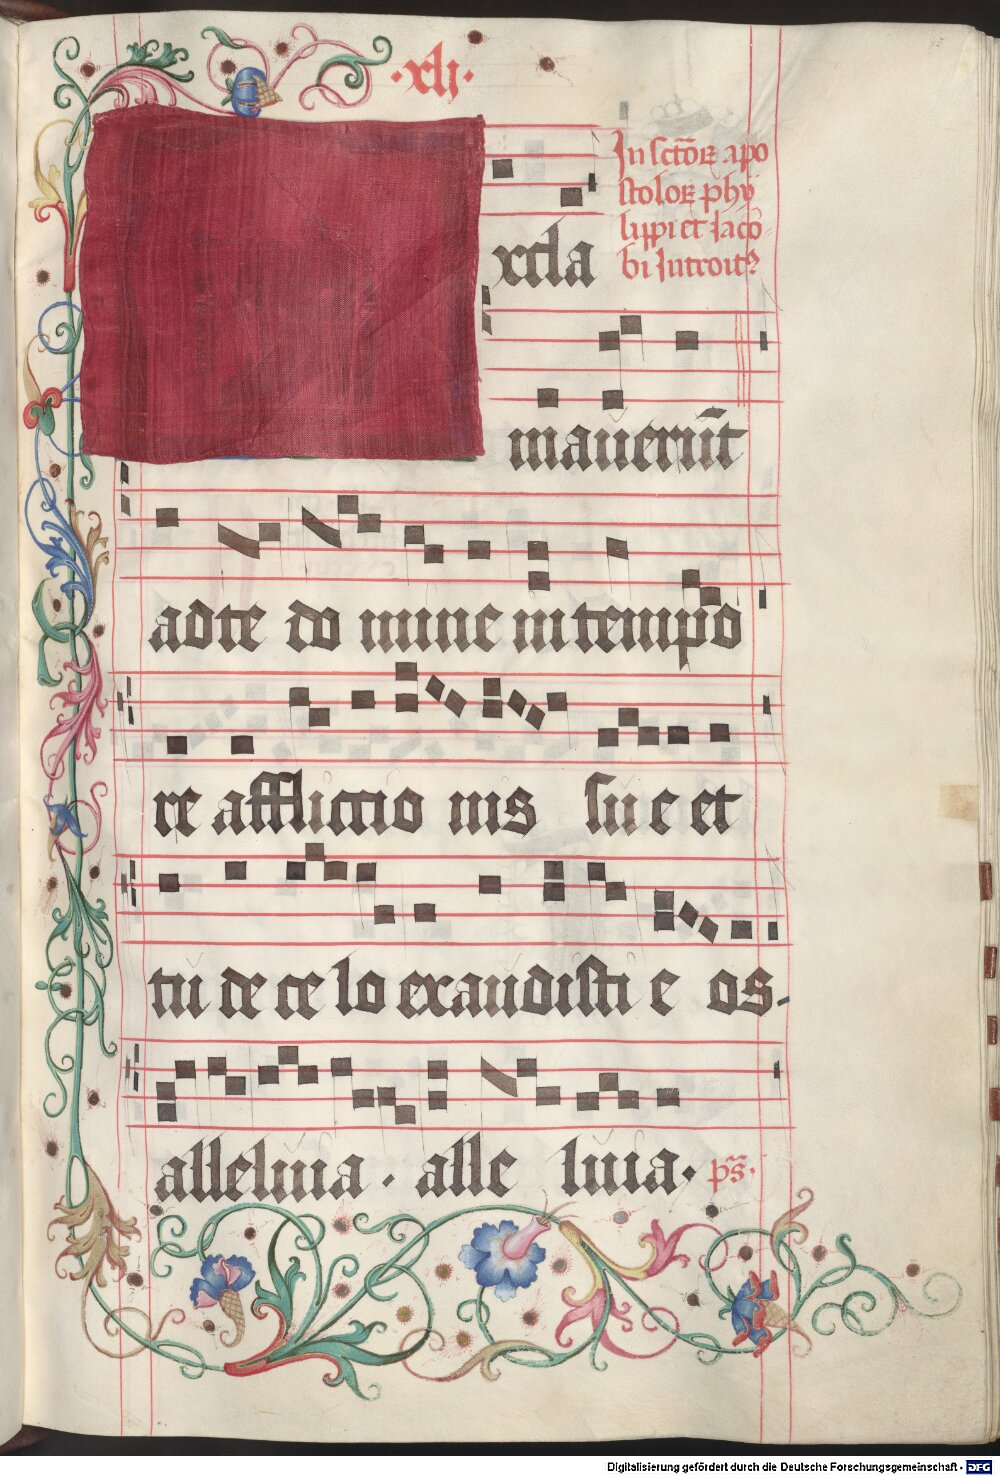 ·xlj·
In sctōꝝ apo
stoloꝝ phy
lippi et Jaco
bi Introitꝰ
xcla
maveru̅t
ad te do mine in tempo
re afflictio nis su e et
tu de ce lo exaudisti e os.
alleluia . alle luia. ps̄.
Digitalisierung gefördert durch die Deutsche Forschungsgemeinschaft - DFG